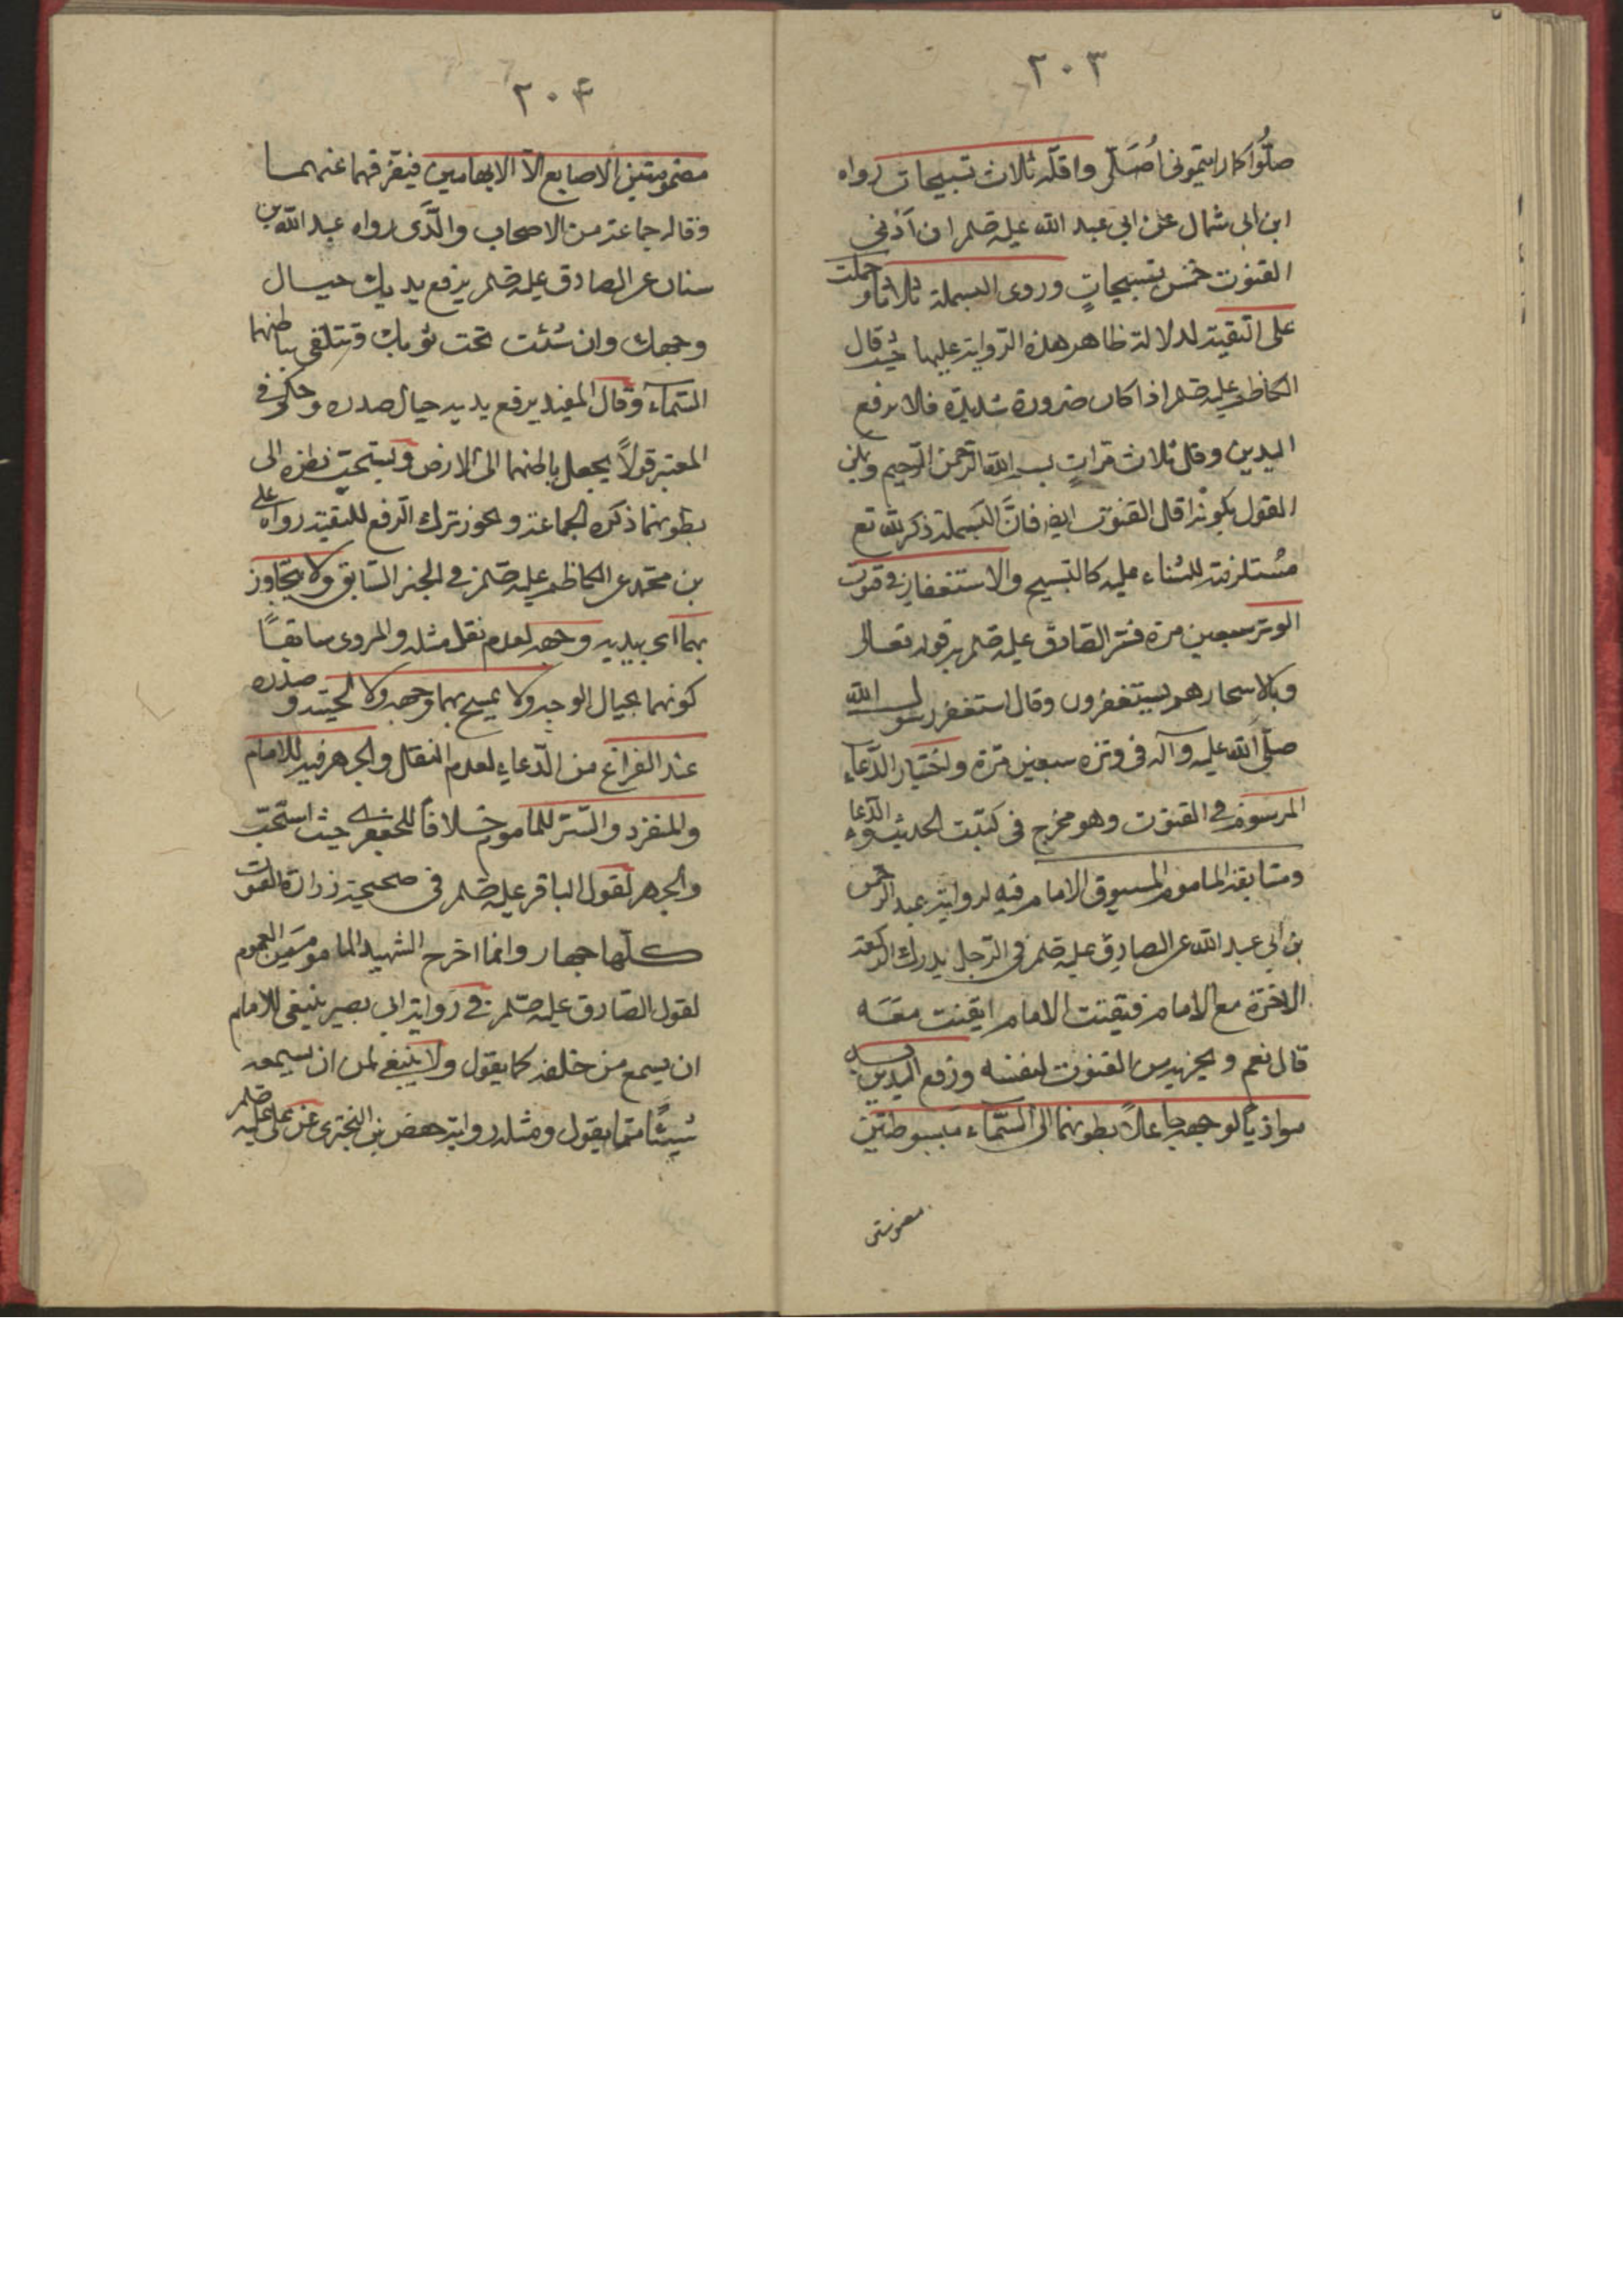 ٢٠٣
صلّوا كما رايتموني اُصَلّي واقلّه ثلاث تسبيحات رواه
ابن ابي شمال عن ابي عبد الله عليه صلم ان اَدْنى
القنوت خمس تسبيحاتٍ وروى البسملة ثلاثا و حملت
على التقية لدلالة ظاهر هذه الرواية عليها حيث قال
الكاظم عليه صلم اذا كان ضرورة شديدة فلا يرفع
اليدين وقل ثلاث مرات بسم الله الرحمن الرحيم و
القول بكونه اقل القنوت ايضا فانّ البسملة ذكر لله تع
مُستلزمة للثناء عليه كالتسبيح والاستغفار في قنوت
الوتر سبعين مرة فسّر الصادق عليه صلم به قوله تعالى
وبالاسحار هم يستغفرون وقال استغفر رسول الله
صلّى الله عليه وآله في وتره سبعين مرّة واختيار الدّعاء
المرسوم في القنوت وهو مخرج في كتب الحديث والدّعاء
ومتابعة الماموم المسبوق الامام فيه لرواية عبد الرحمن
بن ابي عبد الله عن الصادق عليه صلم في الرّجل يدرك الركعة
الاخرة مع الامام فيقنت الامام ايقنت معه
قال نعم ويجزيه من القنوت لنفسه ورفع اليدين به
موازياً لوجهه جاعلاً بطونهما الى السّماء مبسوطتين
مضمومتين
٢٠٤
مضمومتين الاصابع الّا الابهامين فيفرّقهما عنهما
وقاله جماعة من الاصحاب والّذى رواه عبد الله بن
سنان عن الصادق عليه صلم يرفع يديك حيال
وجهك وان شئت تحت ثوبك وتتلقى بباطنهما
السّماء وقال المفيد يرفع يديه حيال صدره وحكى في
المعتبر قولاً يجعل باطنهما الى الارض ويستحبّ نظره الى
بطونهما ذكره الجماعة ويجوز ترك الرفع للتقية رواه على
بن محمّد عن الكاظم عليه صلم في الخبر السّابق ولا يتجاوز
بهما اى بيديه وجهه لعدم نقل مثله والمروى سابقاً
كونهما بحيال الوجه ولا يمسح بهما وجهه ولا لحيته و صدره
عند الفراغ من الدّعاء لعدم النقل والجهر فيه للامام
والمنفرد والسّر للماموم خلافاً للجعفي حيث استحبّ
والجهر لقول الباقر عليه صلم في صحيحة زرارة القنوت
كلّها جهار وانما اخرج الشهيد الماموم من العموم
لقول الصادق عليه صلم في رواية ابي بصير ينبغى للامام
ان يسمع من خلفه كما يقول ولا ينبغي لمن ان يسمعه
شيئاً ممّا يقول ومثله رواية حفص بن البخترى عن على عليه صلم